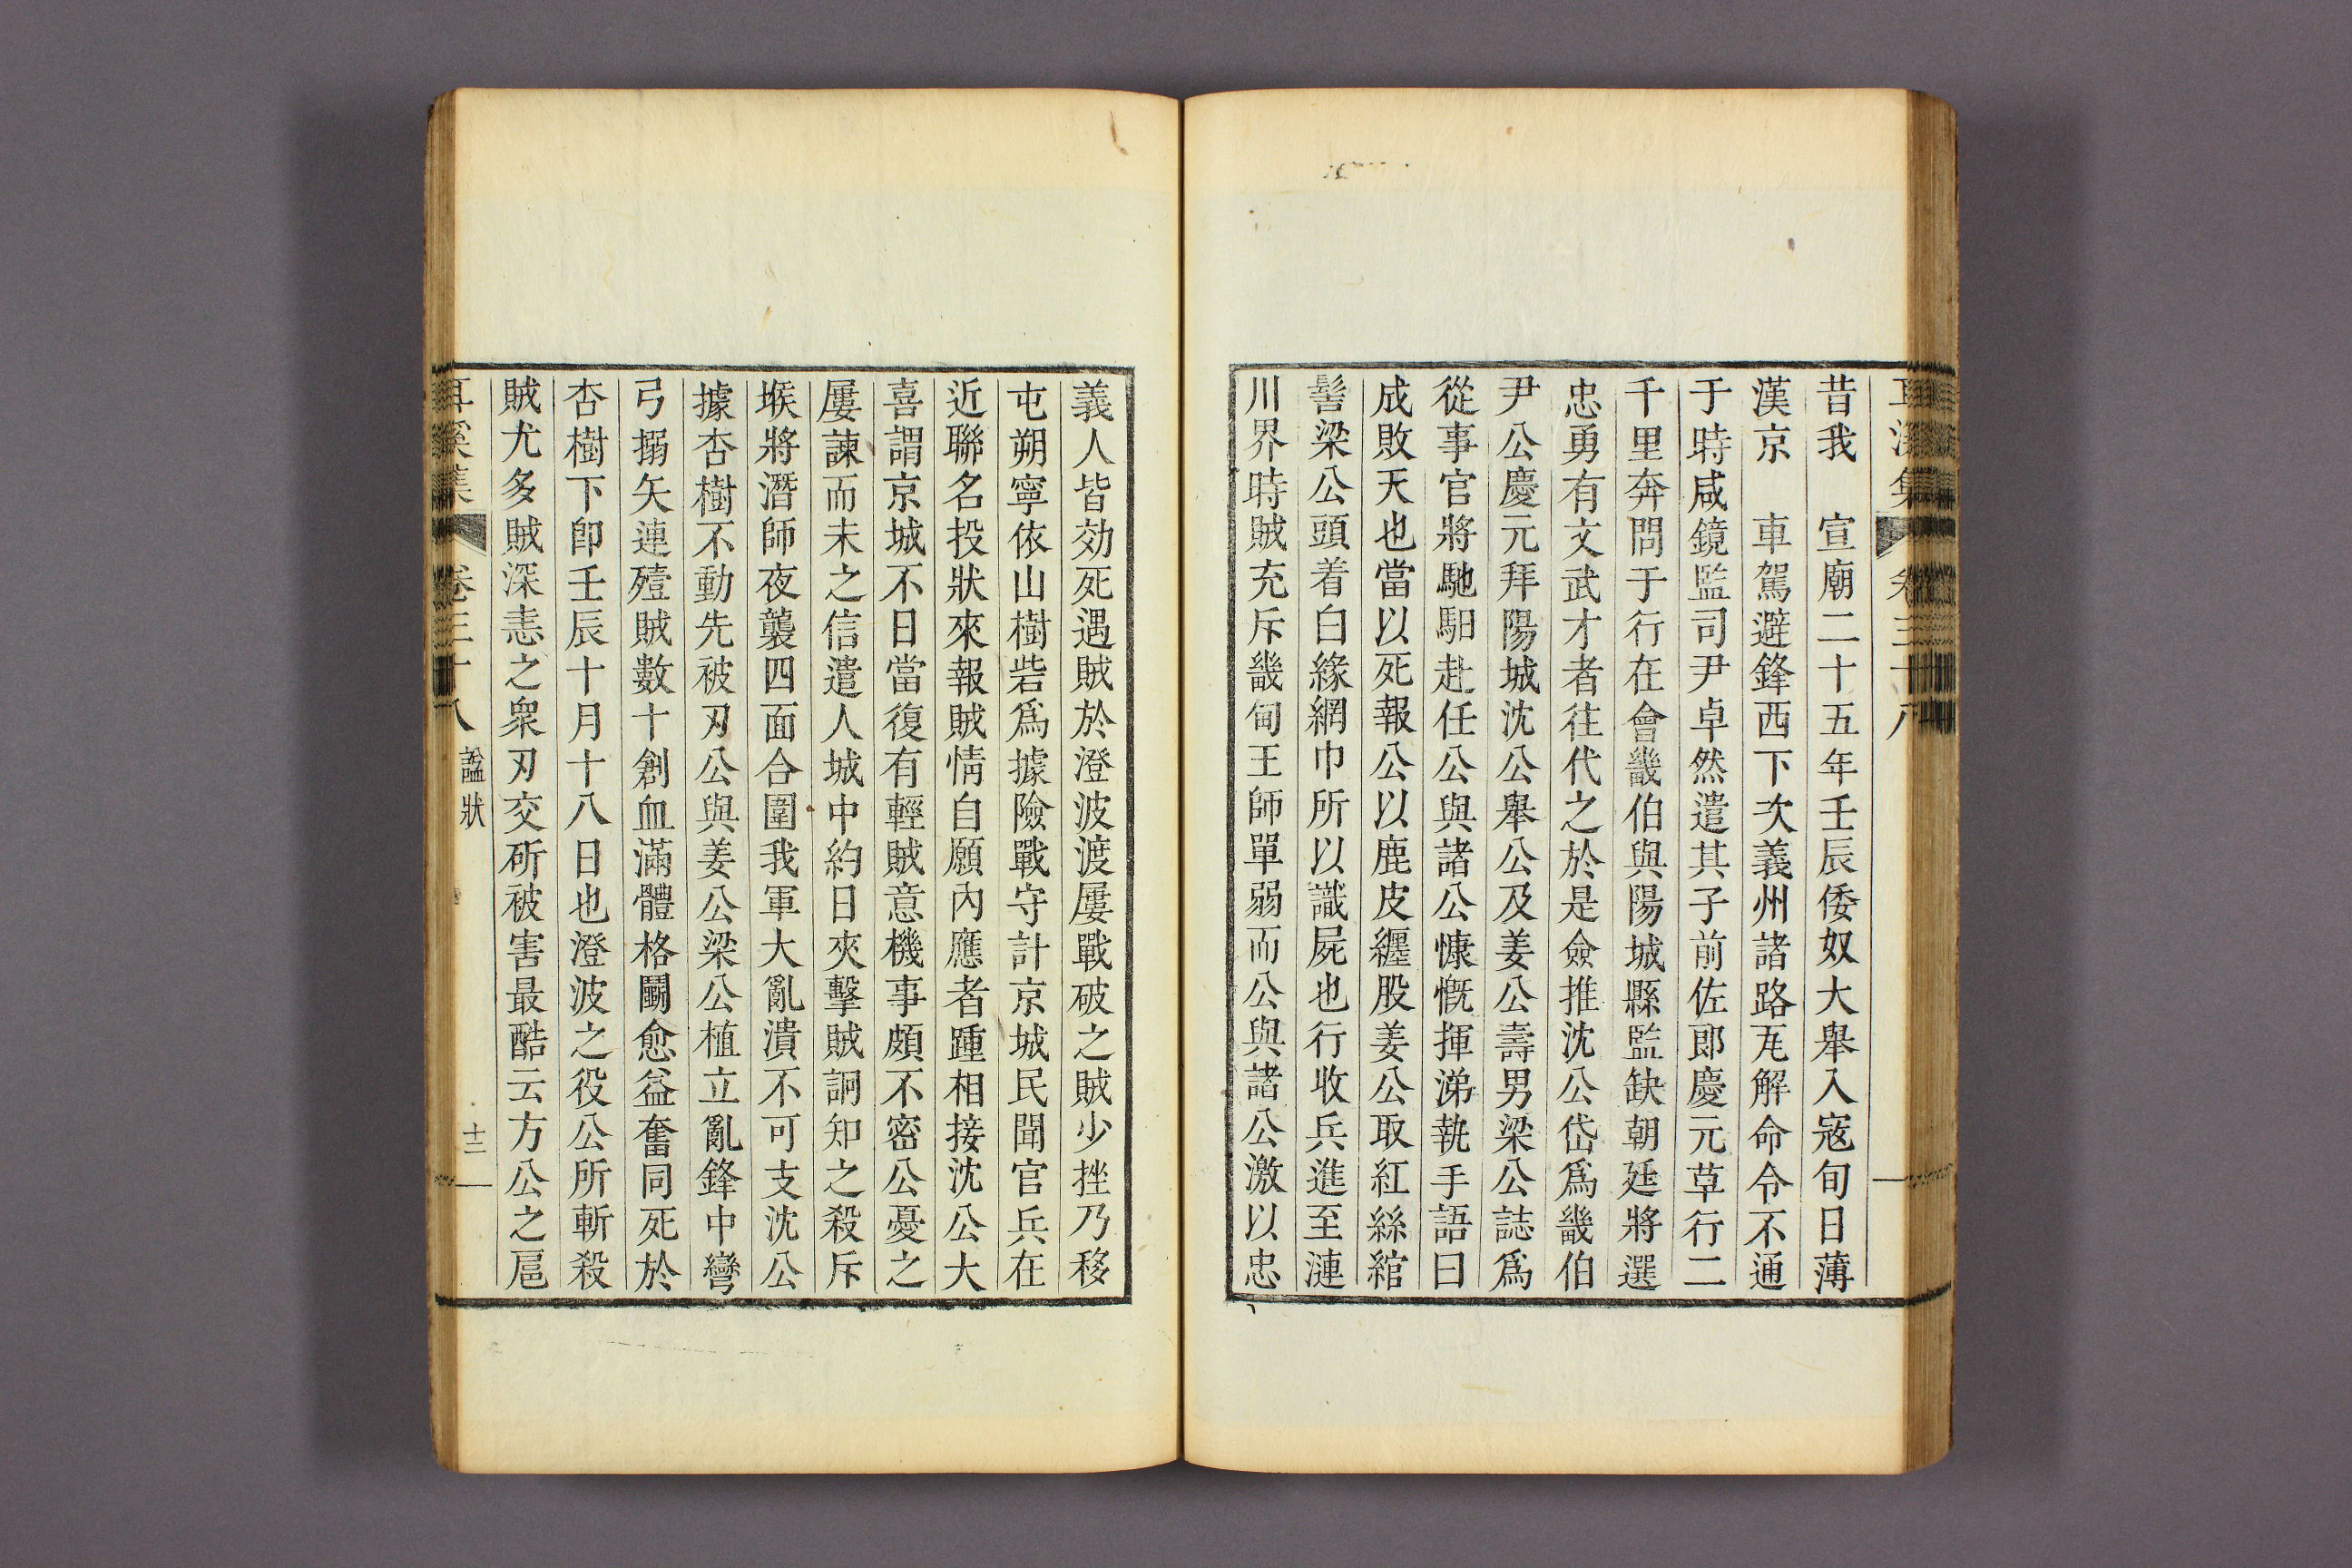 耳溪集 卷三十八
昔我 宣廟二十五年壬辰倭奴大舉入寇旬日薄
漢京 車駕避鋒西下次義州諸路瓦解命令不通
于時咸鏡監司尹卓然遣其子前佐郎慶元草行二
千里奔問于行在會畿伯與陽城縣監缺朝廷將選
忠勇有文武才者往代之於是僉推沈公岱爲畿伯
尹公慶元拜陽城沈公舉公及姜公壽男梁公誌爲
從事官將馳馹赴任公與諸公慷慨揮涕執手語曰
成敗天也當以死報公以鹿皮纒股姜公取紅絲綰
髻梁公頭着白緣網巾所以識屍也行收兵進至漣
川界時賊充斥畿甸王師單弱而公與諸公激以忠
義人皆効死遇賊於澄波渡屢戰破之賊少挫乃移
屯朔寧依山樹砦爲據險戰守計京城民聞官兵在
近聯名投狀來報賊情自願內應者踵相接沈公大
喜謂京城不日當復有輕賊意機事頗不密公憂之
屢諫而未之信遣人城中約日夾擊賊詗知之殺斥
堠將潛師夜襲四面合圍我軍大亂潰不可支沈公
據杏樹不動先被刃公與姜公梁公植立亂鋒中彎
弓搦矢連殪賊數十創血滿體格鬭愈益奮同死於
杏樹下卽壬辰十月十八日也澄波之役公所斬殺
賊尤多賊深恚之衆刃交斫被害最酷云方公之扈
耳溪集 卷三十八 諡狀 十二